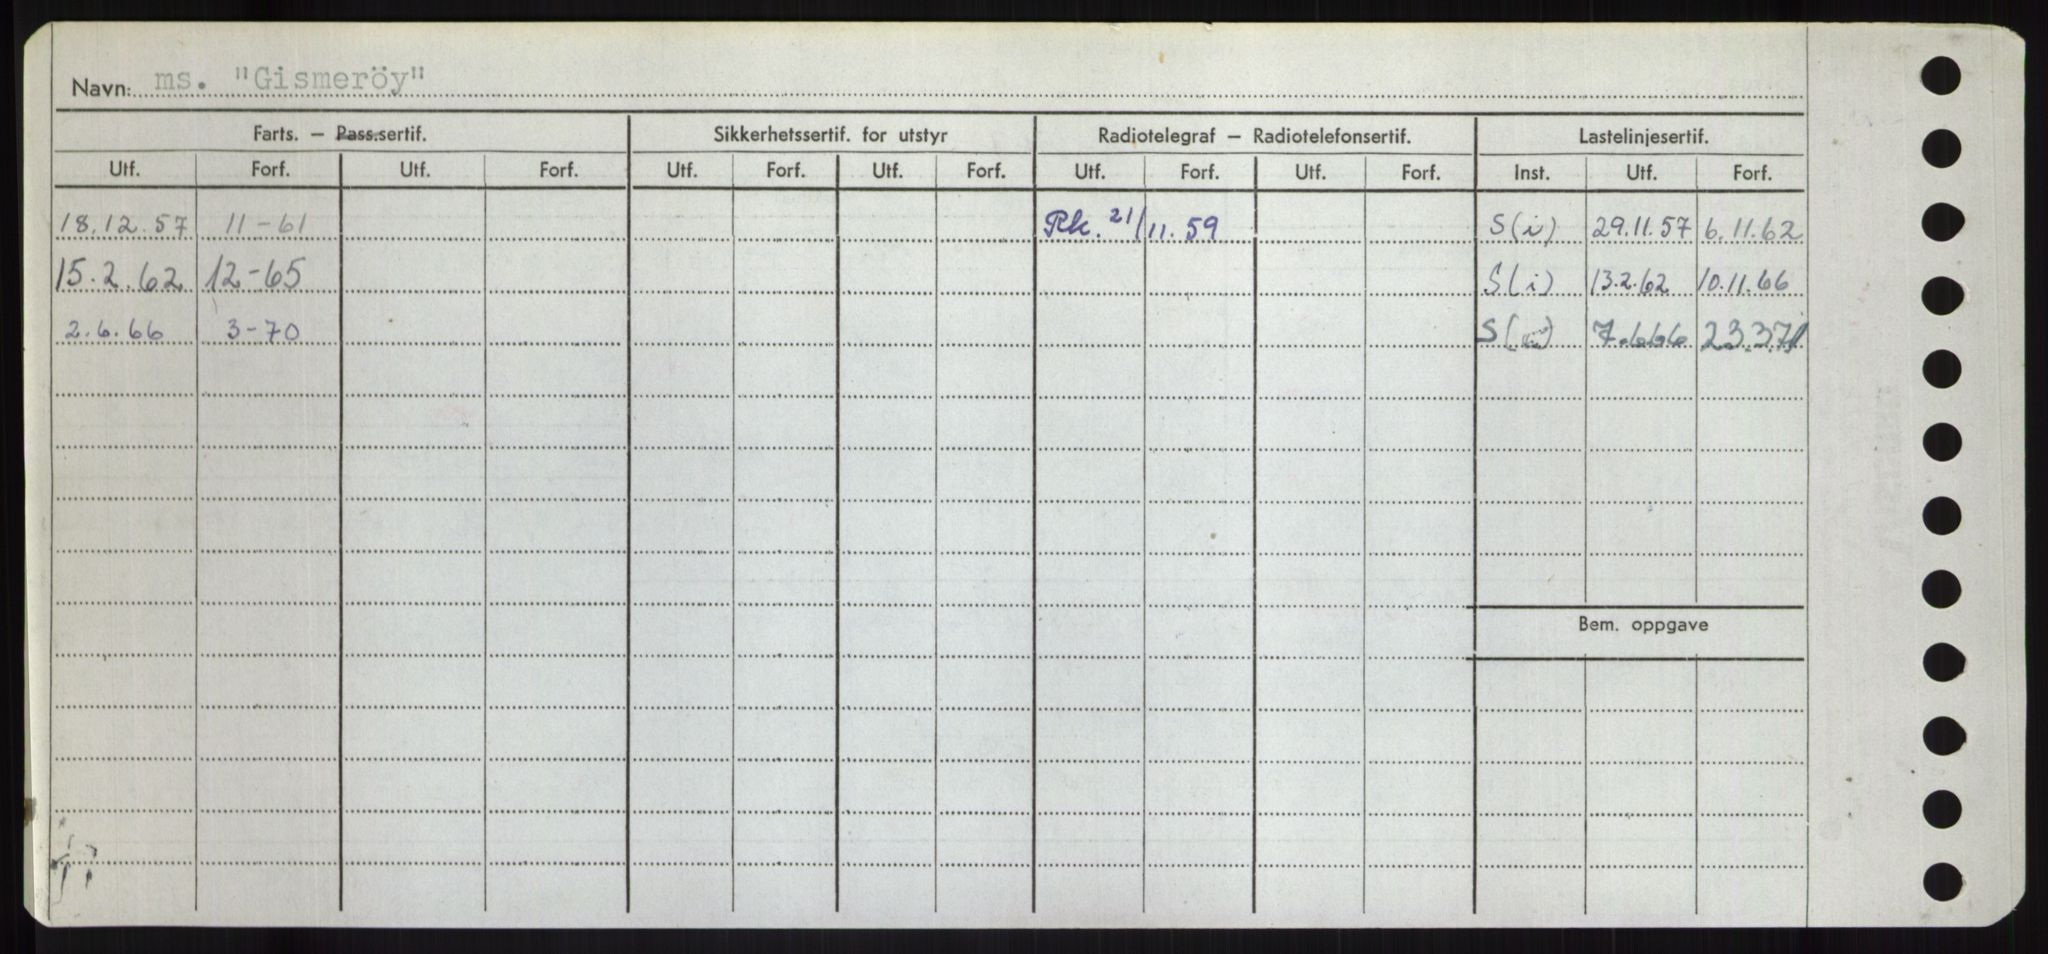 Navn: ms. "Gismeröy"
Farts. – Pass.sertif. Sikkerhetssertif. for utstyr Radiotelegraf – Radiotelefonsertif. Lastelinjesertif.
Utf. Forf. Utf. Forf. Utf. Forf. Utf. Forf. Utf. Forf. Utf. Forf. Inst. Utf. Forf.
18.12.57 11-61 Rk. 21/11.59 S(i) 29.11.57 6.11.62
15.2.62 12-65 S(i) 13.2.62 10.11.66
2.6.66 3-70 S( ) 7.6.66 23.3.71
Bem. oppgave